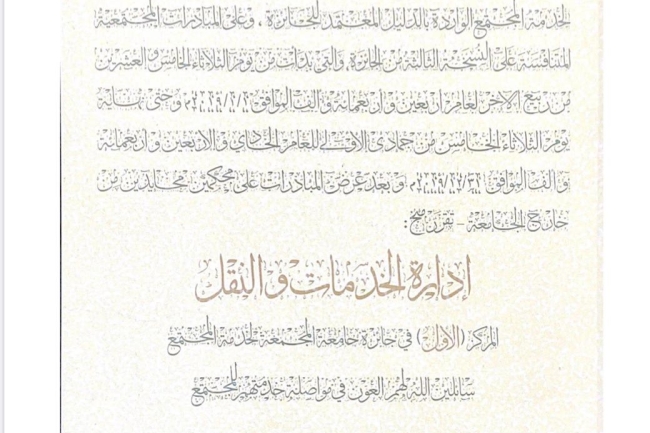 لخدمة المجتمع الواردة بالدليل المعتمد للجائزة ، وعلى المبادرات المجتمعية
المتنافسة على النسخة الثالثة من الجائزة، والتي بدأت من يوم الثلاثاء الخامس والعشرين
من ربيع الآخر لعام أربعين وأربعمائة وألف الموافق ٢٠١٩/١/١م وحتى نهاية
يوم الثلاثاء الخامس من جمادى الأولى للعام الحادي والأربعين وأربعمائة
وألف الموافق ٢٠١٩/١٢/٣١م وبعد عرض المبادرات على محكمين محايدين من
خارج الجامعة - تقرر منح :
إدارة الخدمات والنقل
المركز (الأول) في جائزة جامعة المجمعة لخدمة المجتمع
سائلين الله لهم العون في مواصلة خدمتهم للمجتمع